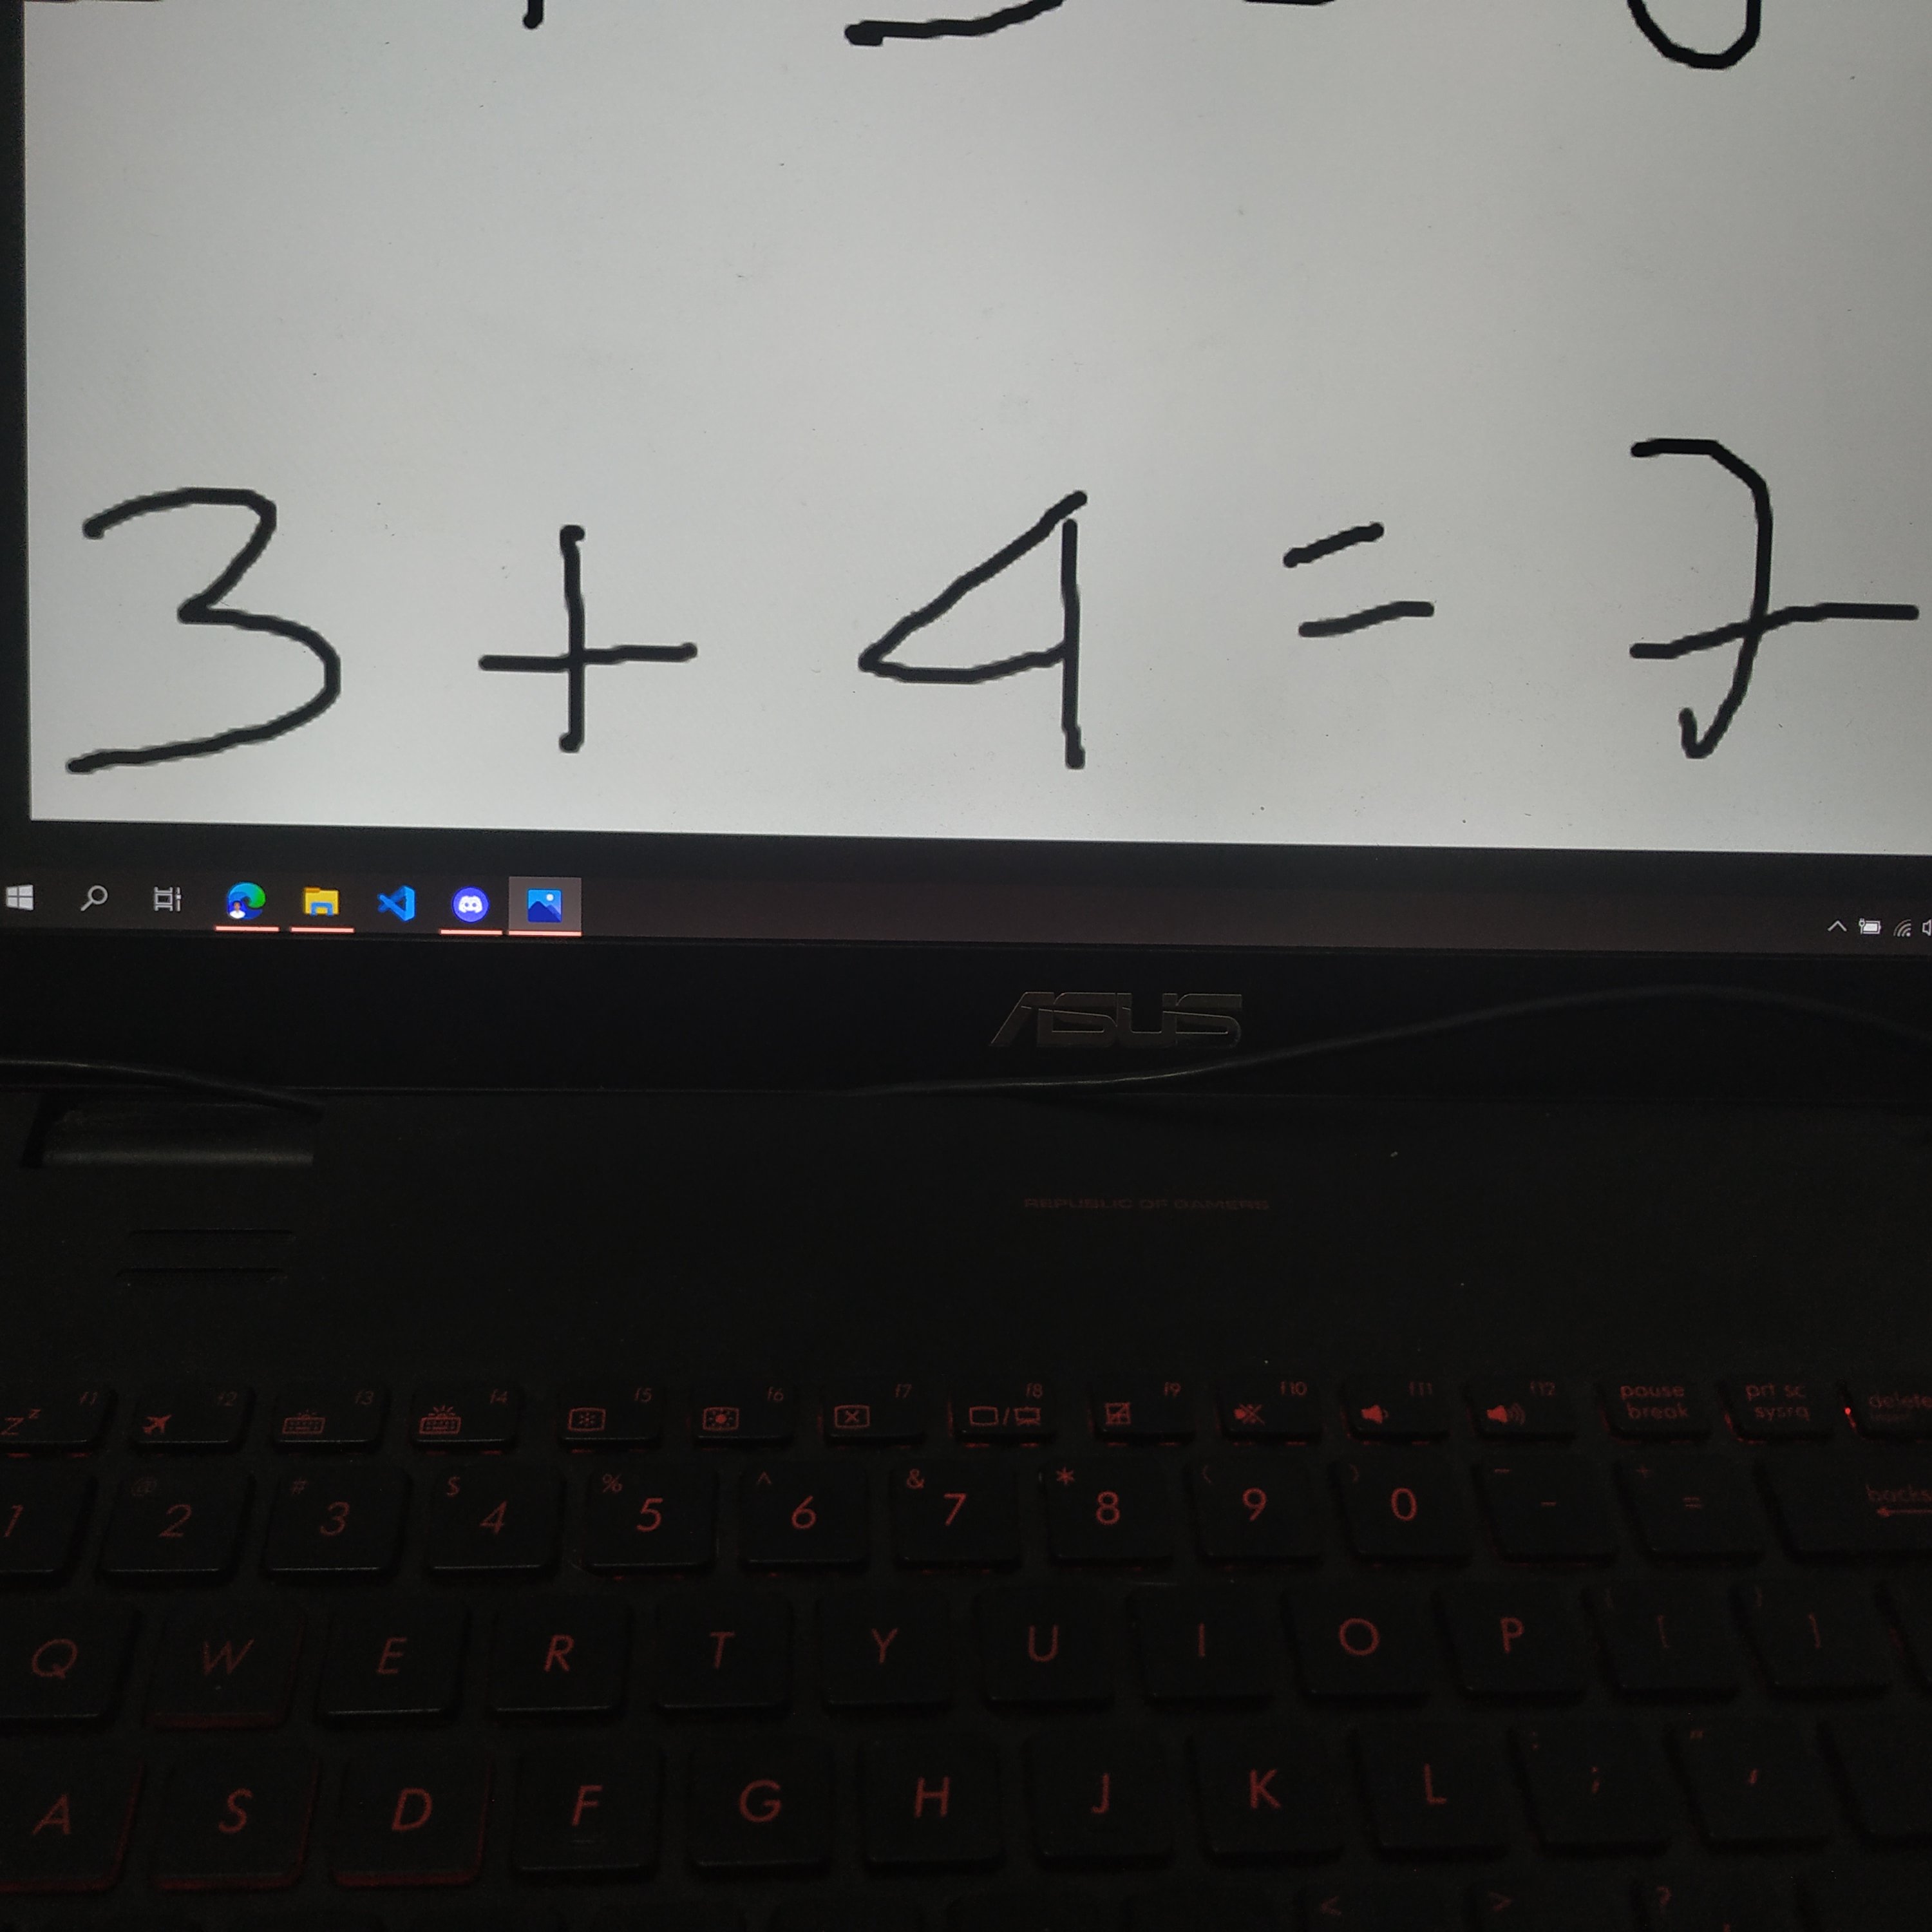 3 + 4 = 7
ASUS
REPUBLIC OF GAMERS
f1 f2 f3 f4 f5 f6 f7 f8 f9 f10 f11 f12 pause break prt sc sysrq delete
1 @ 2 # 3 $ 4 % 5 ^ 6 & 7 * 8 ( 9 ) 0 - + = backs
Q W E R T Y U I O P { [ } ]
A S D F G H J K L : ; " '
< > ?